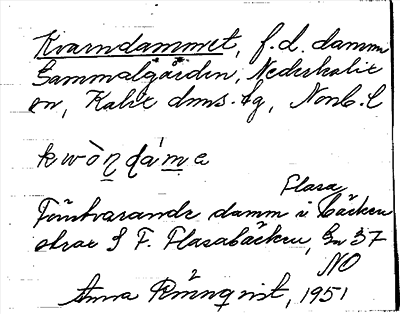 Kvarndammet, f.d. damm
Gammalgården, Nederkalix
sn, Kalix dms. tg, Nonb. l
kwòṇḍám̱e
Flasa
Försvarande damm i bäcken
strax S F. Flasabäcken, Gn 37
NO
Anna Rönnqvist, 1951